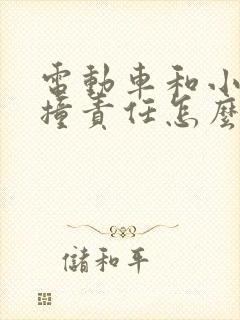 電動車和小
撞責任怎麼
儲和平